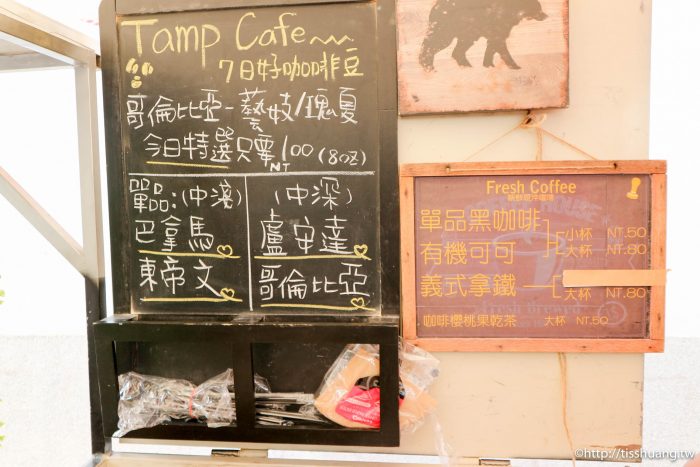 Tamp Cafe
7日好咖啡豆
哥倫比亞-藝妓/瑰夏
今日特選只要100(8oz)
NT
單品:(中淺)
巴拿馬
東帝文
(中深)
盧安達
哥倫比亞
Fresh Coffee
單品黑咖啡
有機可可
小杯 NT.50
大杯 NT.80
義式拿鐵
大杯 NT.80
咖啡櫻桃果乾茶 大杯 NT.50
©http://tisshuang.tw